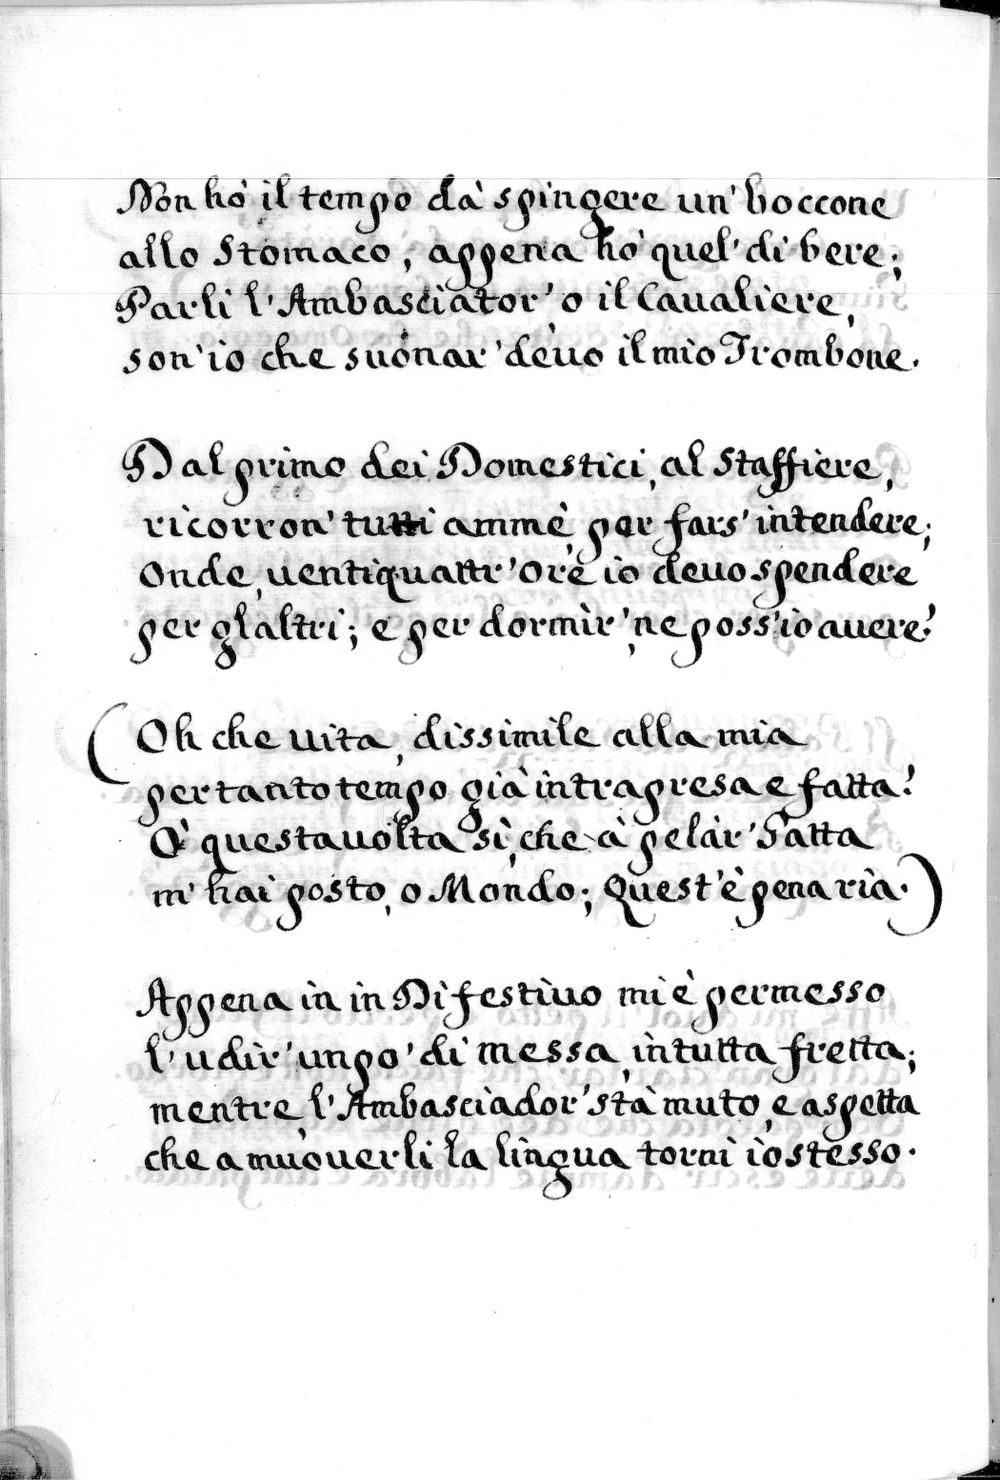 Non hò il tempo dà spingere un' boccone
allo Stomaco, appena hò quel' di bere;
Parli l'Ambasciator' o il Caualiere,
son' io che suonar' deuo il mio Trombone.
Dal primo dei Domestici, al Staffiere,
ricorron' tutti ammè, per fars' intendere;
Onde, uentiquattr' Ore io deuo spendere
per gl'altri; e per dormir', ne poss' io auere?
(Oh che uita, dissimile alla mia
per tanto tempo già intrapresa e fatta!
O' questa uolta sì, che à pelàr' Gatta
m' hai posto, o Mondo; Quest' è pena rìa.)
Appena in in Dì festiuo mi è permesso
l' udir' un po' di Messa, in tutta fretta;
mentre, l'Ambasciador' stà muto, e aspetta
che a muouerli la lingua torni io stesso.